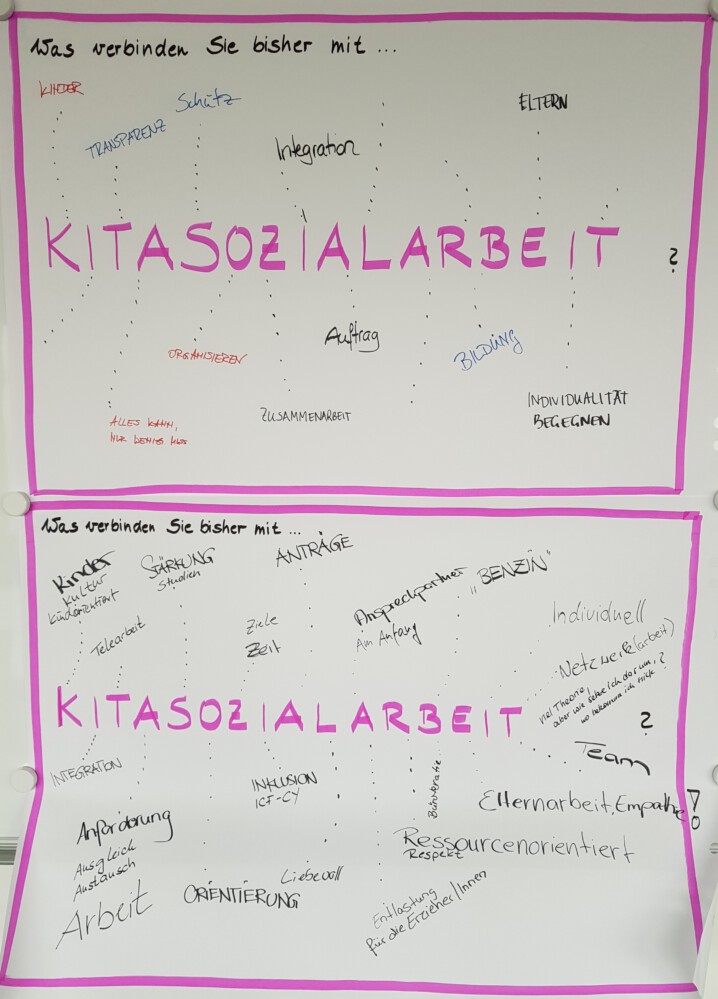 Was verbinden Sie bisher mit ...
KINDER
Schutz
TRANSPARENZ
ELTERN
Integration
KITASOZIALARBEIT ?
Auftrag
ORGANISIEREN
BILDUNG
ALLES KANN,
NUR WENIG MUSS
ZUSAMMENARBEIT
INDIVIDUALITÄT
BEGEGNEN
Was verbinden Sie bisher mit ...
Kinder
Kultur
Kindorientiert
STÄRKUNG
Studieh
ANTRÄGE
Ansprechpartner
Am Anfang
„BENZIN"
Telearbeit
Ziele
Zeit
Individuell
Netzwerk(arbeit)
viel Theorie,
aber wie setze ich das um,
wo bekomme ich Hilfe?
KITASOZIALARBEIT ?
Team
INTEGRATION
INKLUSION
ICF-CY
Bürokratie
Elternarbeit, Empathie !
Anforderung
Ausgleich
Austausch
Ressourcenorientiert
Respekt
Arbeit
ORIENTIERUNG
Liebevoll
Entlastung
für die Erzieher/Innen